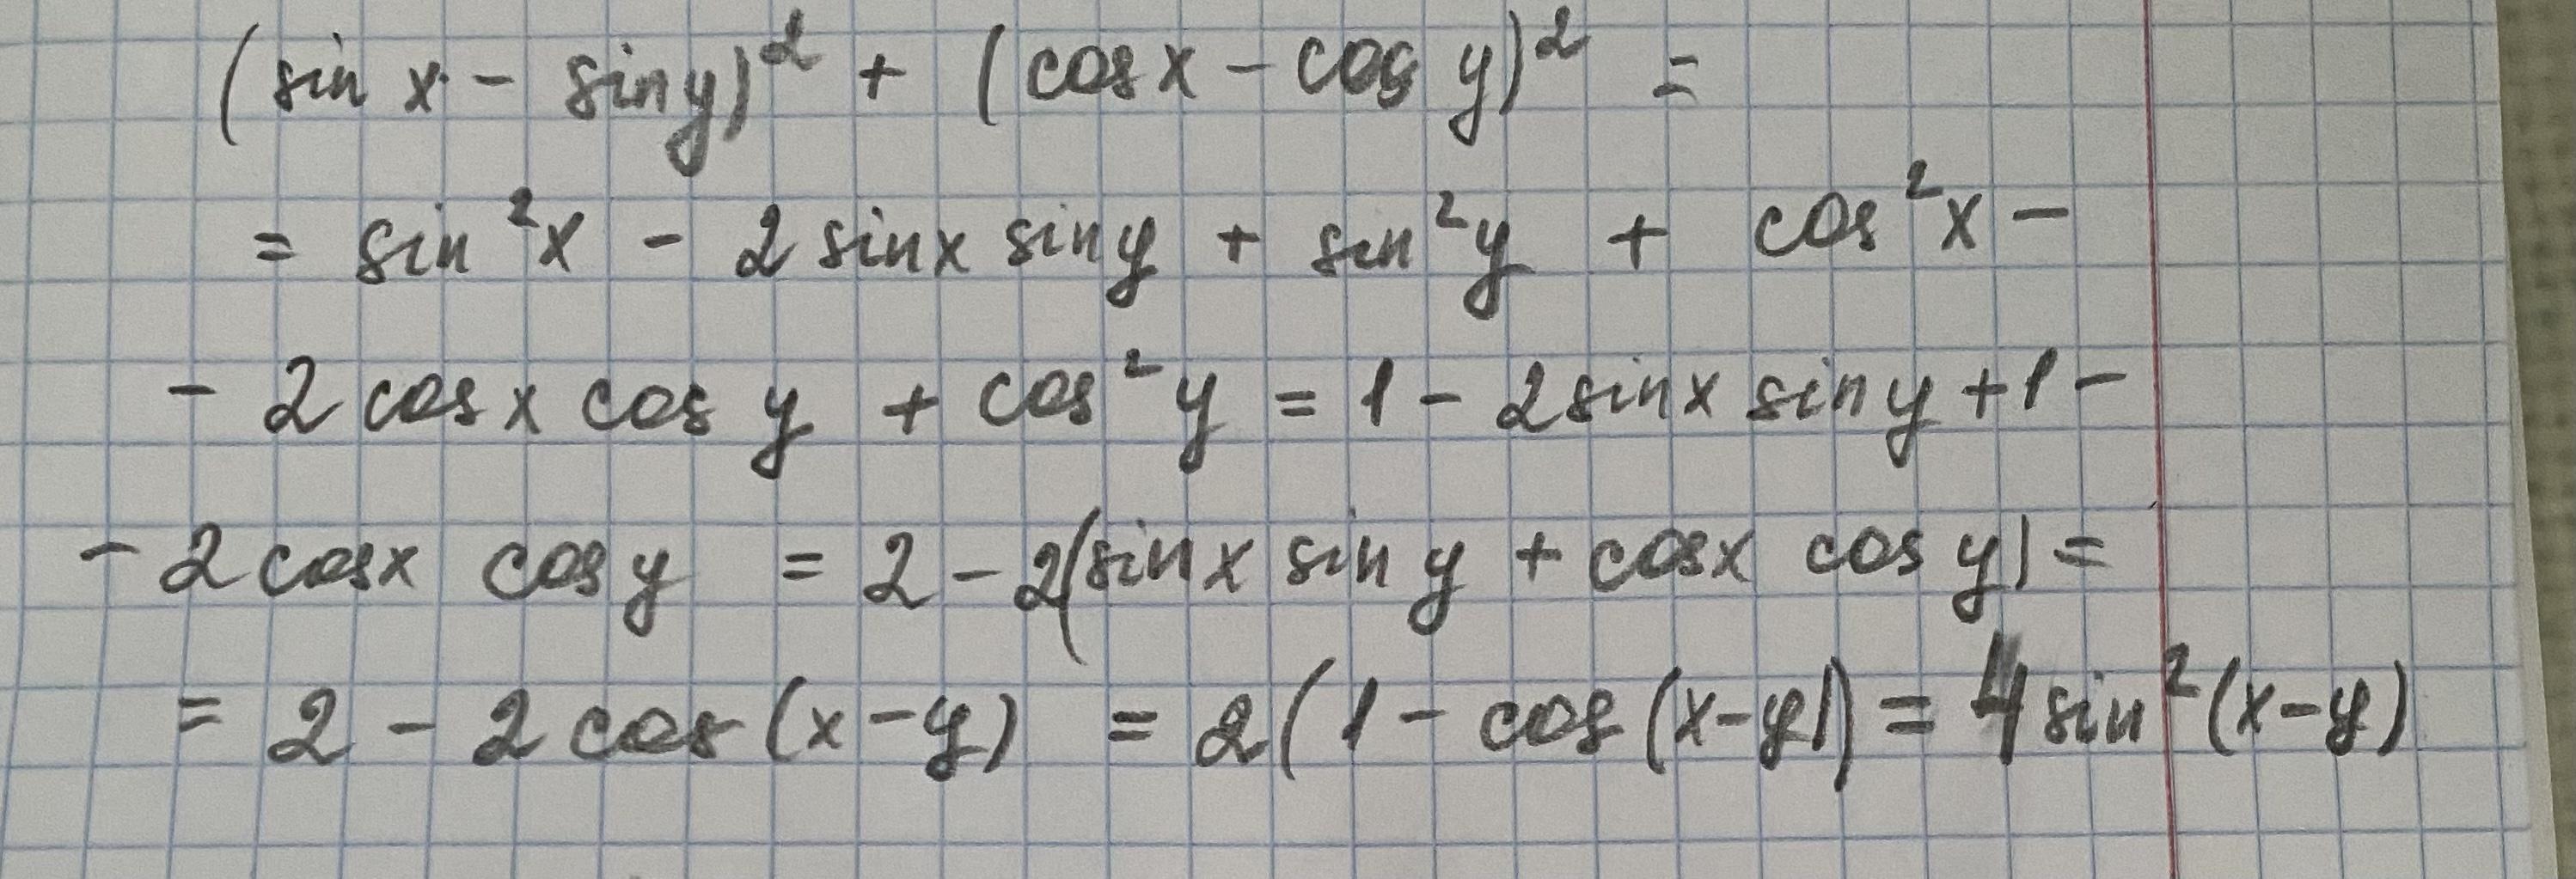 (sin x - sin y)² + (cos x - cos y)² =
= sin²x - 2 sin x sin y + sin²y + cos²x -
- 2 cos x cos y + cos²y = 1 - 2 sin x sin y + 1 -
- 2 cos x cos y = 2 - 2(sin x sin y + cos x cos y) =
= 2 - 2 cos (x - y) = 2(1 - cos (x - y)) = 4 sin²(x - y)